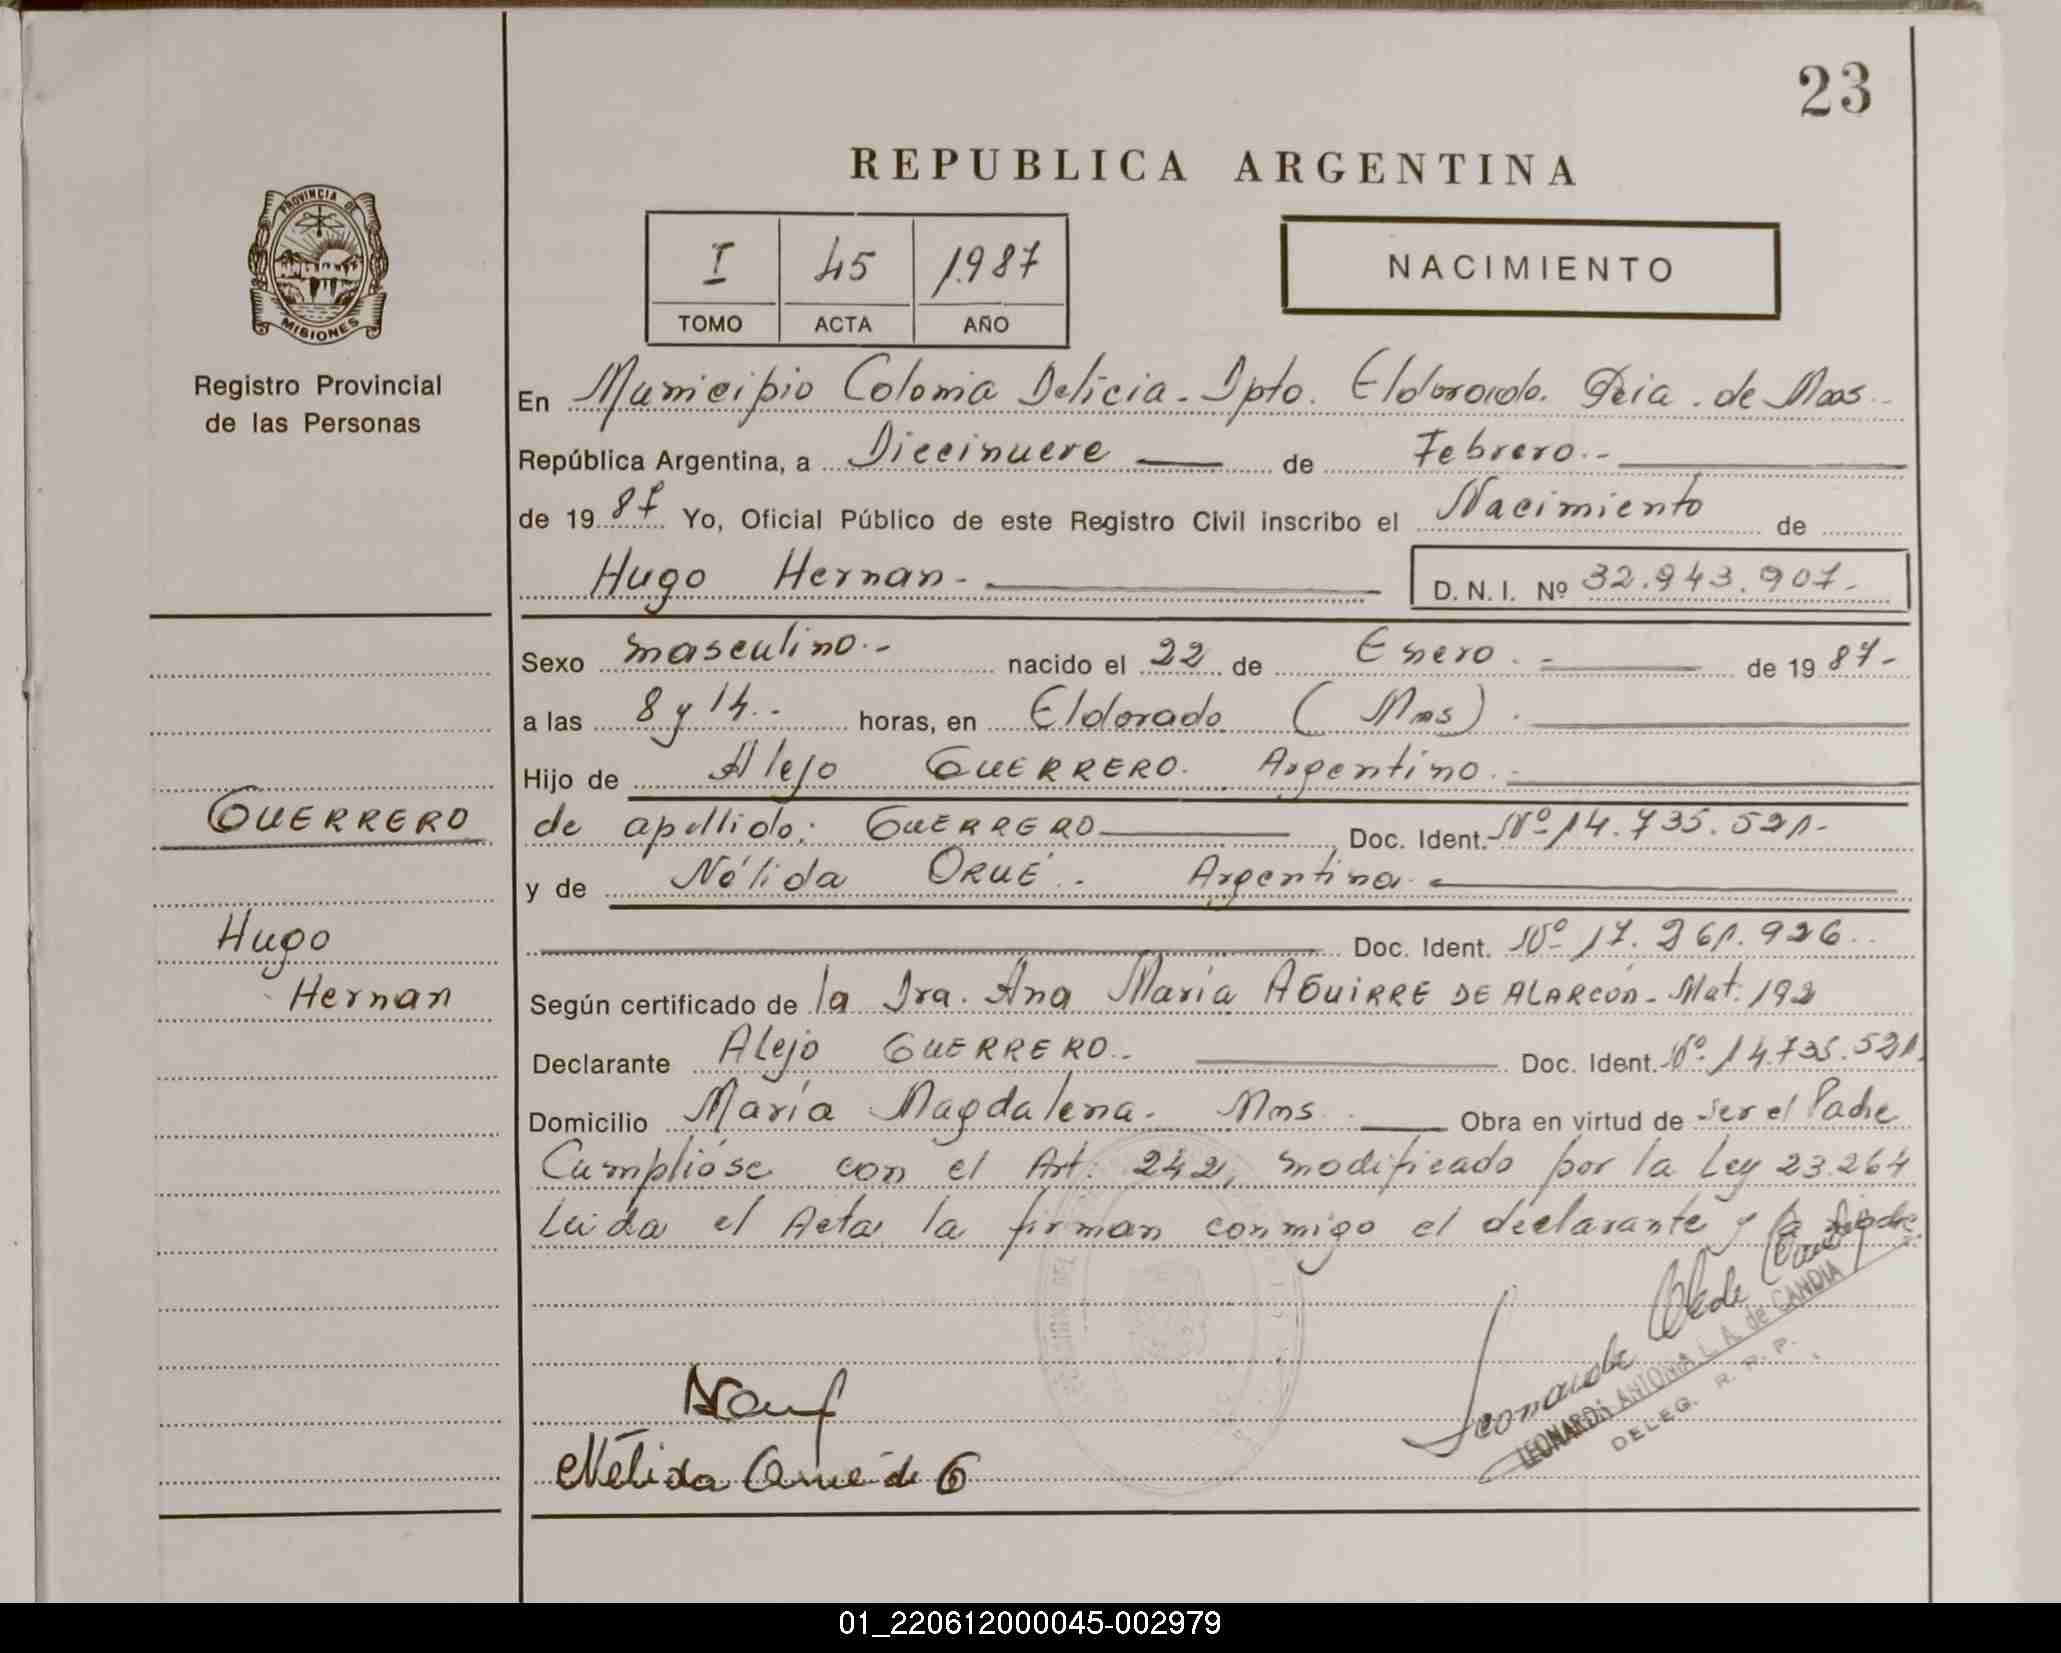 23
REPUBLICA ARGENTINA
PROVINCIA DE
MISIONES
Registro Provincial
de las Personas
I 45 1987
TOMO ACTA AÑO
NACIMIENTO
En Municipio Colonia Delicia - Dpto. Eldorado. Pcia. de Mnes
República Argentina, a Diecinueve de Febrero.-
de 19 87 Yo, Oficial Público de este Registro Civil inscribo el Nacimiento de
Hugo Hernan - D. N. I. Nº 32.943.907.-
Sexo masculino.- nacido el 22 de Enero.- de 19 87-
a las 8 y 14.- horas, en Eldorado (Mnes).
Hijo de Alejo GUERRERO. Argentino.-
de apellido: GUERRERO Doc. Ident. Nº 14.735.521.-
y de Nélida ORUÉ. Argentina.
Doc. Ident. Nº 17.261.926.
Según certificado de la Dra. Ana María AGUIRRE DE ALARCÓN - Mat. 192
Declarante Alejo GUERRERO.- Doc. Ident. Nº 14.735.521.
Domicilio María Magdalena - Mnes Obra en virtud de ser el Padre
Cumplióse con el Art. 242, modificado por la Ley 23.264
Leida el Acta la firman conmigo el declarante y la Madre
GUERRERO
Hugo
Hernan
Nélida Orué de G
LEONARDA ANTONIA L. A. de CANDIA
DELEG. R. P. P.
01_220612000045-002979